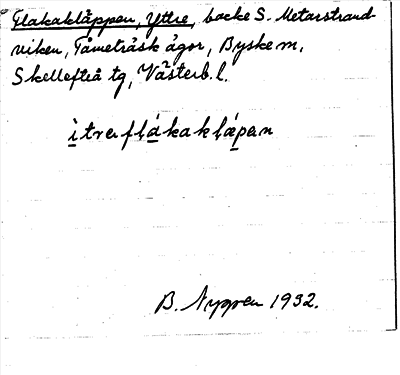 Flakakläppen, Yttre, backe S. Metarstrand-
viken, Tåmeträsk ägor, Byske sn,
Skellefteå tg, Västerb. l.
ìtrəflákaklǽpən
B. Nygren 1932.